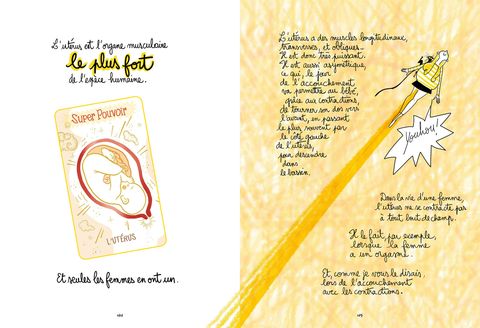 L'utérus est l'organe musculaire
le plus fort
de l'espèce humaine.
Super Pouvoir
L'UTÉRUS
Et seules les femmes en ont un.
L'utérus a des muscles longitudinaux,
transverses, et obliques.
Il est donc très puissant.
Il est aussi asymétrique,
ce qui, le jour
de l'accouchement
va permettre au bébé,
grâce aux contractions,
de tourner son dos vers
l'avant, en passant
le plus souvent par
le côté gauche
de l'utérus,
pour descendre
dans
le bassin.
Youhou!
Dans la vie d'une femme,
l'utérus ne se contracte pas
à tout bout de champ.
Il le fait, par exemple,
lorsque la femme
a un orgasme.
Et, comme je vous le disais,
lors de l'accouchement
avec les contractions.